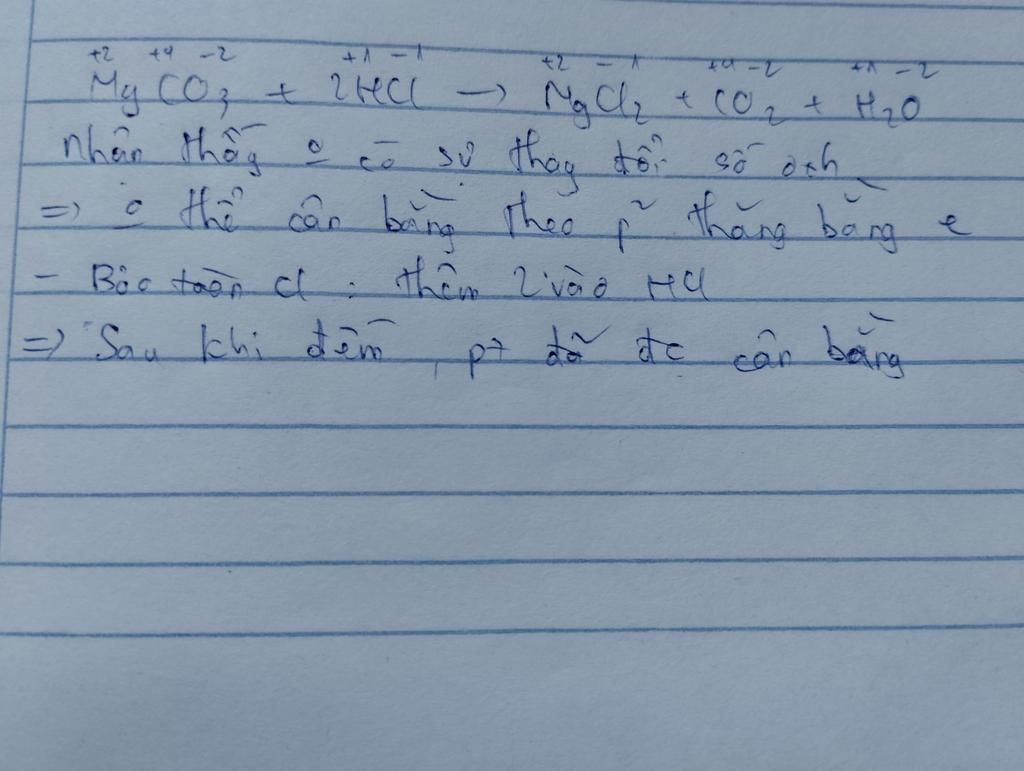 +2 +4 -2 +1 -1 +2 -1 +4 -2 +1 -2
MgCO3 + 2HCl -> MgCl2 + CO2 + H2O
nhận thấy o có sự thay đổi số oxh
=> o thể cân bằng theo p² thăng bằng e
- Bảo toàn Cl : thêm 2 vào HCl
=> Sau khi đếm, pt đã đc cân bằng